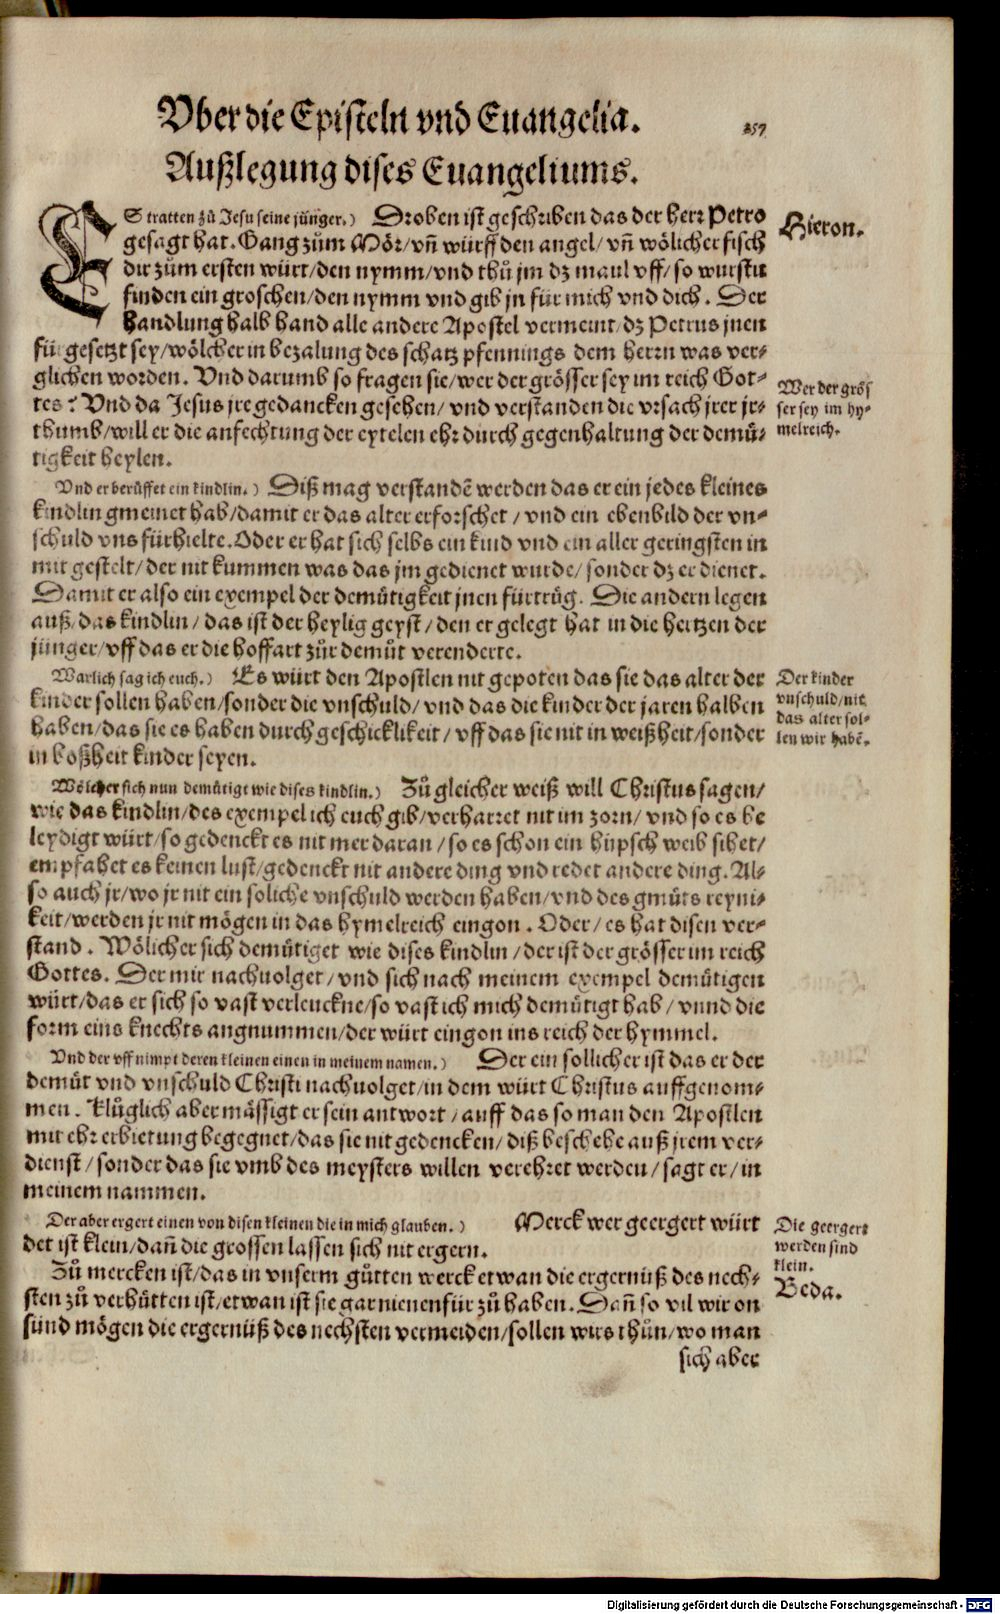 Vber die Episteln vnd Euangelia.
257
Außlegung dises Euangeliums.
ES tratten zů Jesu seine jünger.) Droben ist geschriben das der herr Petro
gesagt hat. Gang zům Mör/ vñ würff den angel/ vñ wölicher fisch
dir zům ersten würt/ den nymm/ vnd thů jm dz maul vff/ so wurstu
finden ein groschen/ den nymm vnd gib jn für mich vnd dich. Der
handlung halb hand alle andere Apostel vermeint/ dz Petrus jnen
fürgesetzt sey/ wölcher in bezalung des schatz pfennings dem herrn was ver-
glichen worden. Vnd darumb so fragen sie/ wer der grösser sey im reich Got-
tes? Vnd da Jesus jre gedancken gesehen/ vnd verstanden die vrsach jrer jr-
thumb/ will er die anfechtung der eytelen ehr durch gegenhaltung der demü-
tigkeit heylen.
Hieron.
Wer der grös
ser sey im hy-
melreich.
Vnd er berüffet ein kindlin.) Diß mag verstandē werden das er ein jedes kleines
kindlin gmeinet hab/ damit er das alter erforschet/ vnd ein ebenbild der vn-
schuld vns fürhielte. Oder er hat sich selbs ein kind vnd ein aller geringsten in
mit gestelt/ der nit kummen was das jm gedienet wurde/ sonder dz er dienet.
Damit er also ein exempel der demütigkeit jnen fürtrüg. Die andern legen
auß/ das kindlin/ das ist der heylig geyst/ den er gelegt hat in die hertzen der
jünger/ vff das er die hoffart zůr demüt verenderte.
Warlich sag ich euch.) Es würt den Apostlen nit gepoten das sie das alter der
kinder sollen haben/ sonder die vnschuld/ vnd das die kinder der jaren halben
haben/ das sie es haben durch geschicklikeit/ vff das sie nit in weißheit/ sonder
in boßheit kinder seyen.
Der kinder
vnschuld/ nit
das alter sol-
len wir habē.
Wölcher sich nun demütigt wie dises kindlin.) Zů gleicher weiß will Christus sagen/
wie das kindlin/ des exempel ich euch gib/ verharret nit im zorn/ vnd so es be
leydigt würt/ so gedenckt es nit mer daran/ so es schon ein hüpsch weib sihet/
empfahet es keinen lust/ gedenckt nit andere ding vnd redet andere ding. Al-
so auch jr/ wo jr nit ein soliche vnschuld werden haben/ vnd des gmüts reyni-
keit/ werden jr nit mögen in das hymelreich eingon. Oder/ es hat disen ver-
stand. Wölicher sich demütiget wie dises kindlin/ der ist der grösser im reich
Gottes. Der mir nachuolget/ vnd sich nach meinem exempel demütigen
würt/ das er sich so vast verleuckne/ so vast ich mich demütigt hab/ vnnd die
form eins knechts angnummen/ der würt eingon ins reich der hymmel.
Vnd der vff nimpt deren kleinen einen in meinem namen.) Der ein sollicher ist das er der
demüt vnd vnschuld Christi nachuolget/ in dem würt Christus auffgenom-
men. Klüglich aber mässigt er sein antwort/ auff das so man den Apostlen
mit ehr erbietung begegnet/ das sie nit gedencken/ diß beschehe auß jrem ver-
dienst/ sonder das sie vmb des meysters willen verehret werden/ sagt er/ in
meinem nammen.
Der aber ergert einen von disen kleinen die in mich glauben.) Merck wer geergert würt
det ist klein/ dañ die grossen lassen sich nit ergern.
Die geergert
werden sind
klein.
Zů mercken ist/ das in vnserm gütten werck etwan die ergernüß des nech-
sten zů verhütten ist/ etwan ist sie gar nienen für zů haben. Dañ so vil wir on
sünd mögen die ergernüß des nechsten vermeiden/ sollen wirs thůn/ wo man
Beda.
sich aber
Digitalisierung gefördert durch die Deutsche Forschungsgemeinschaft - DFG